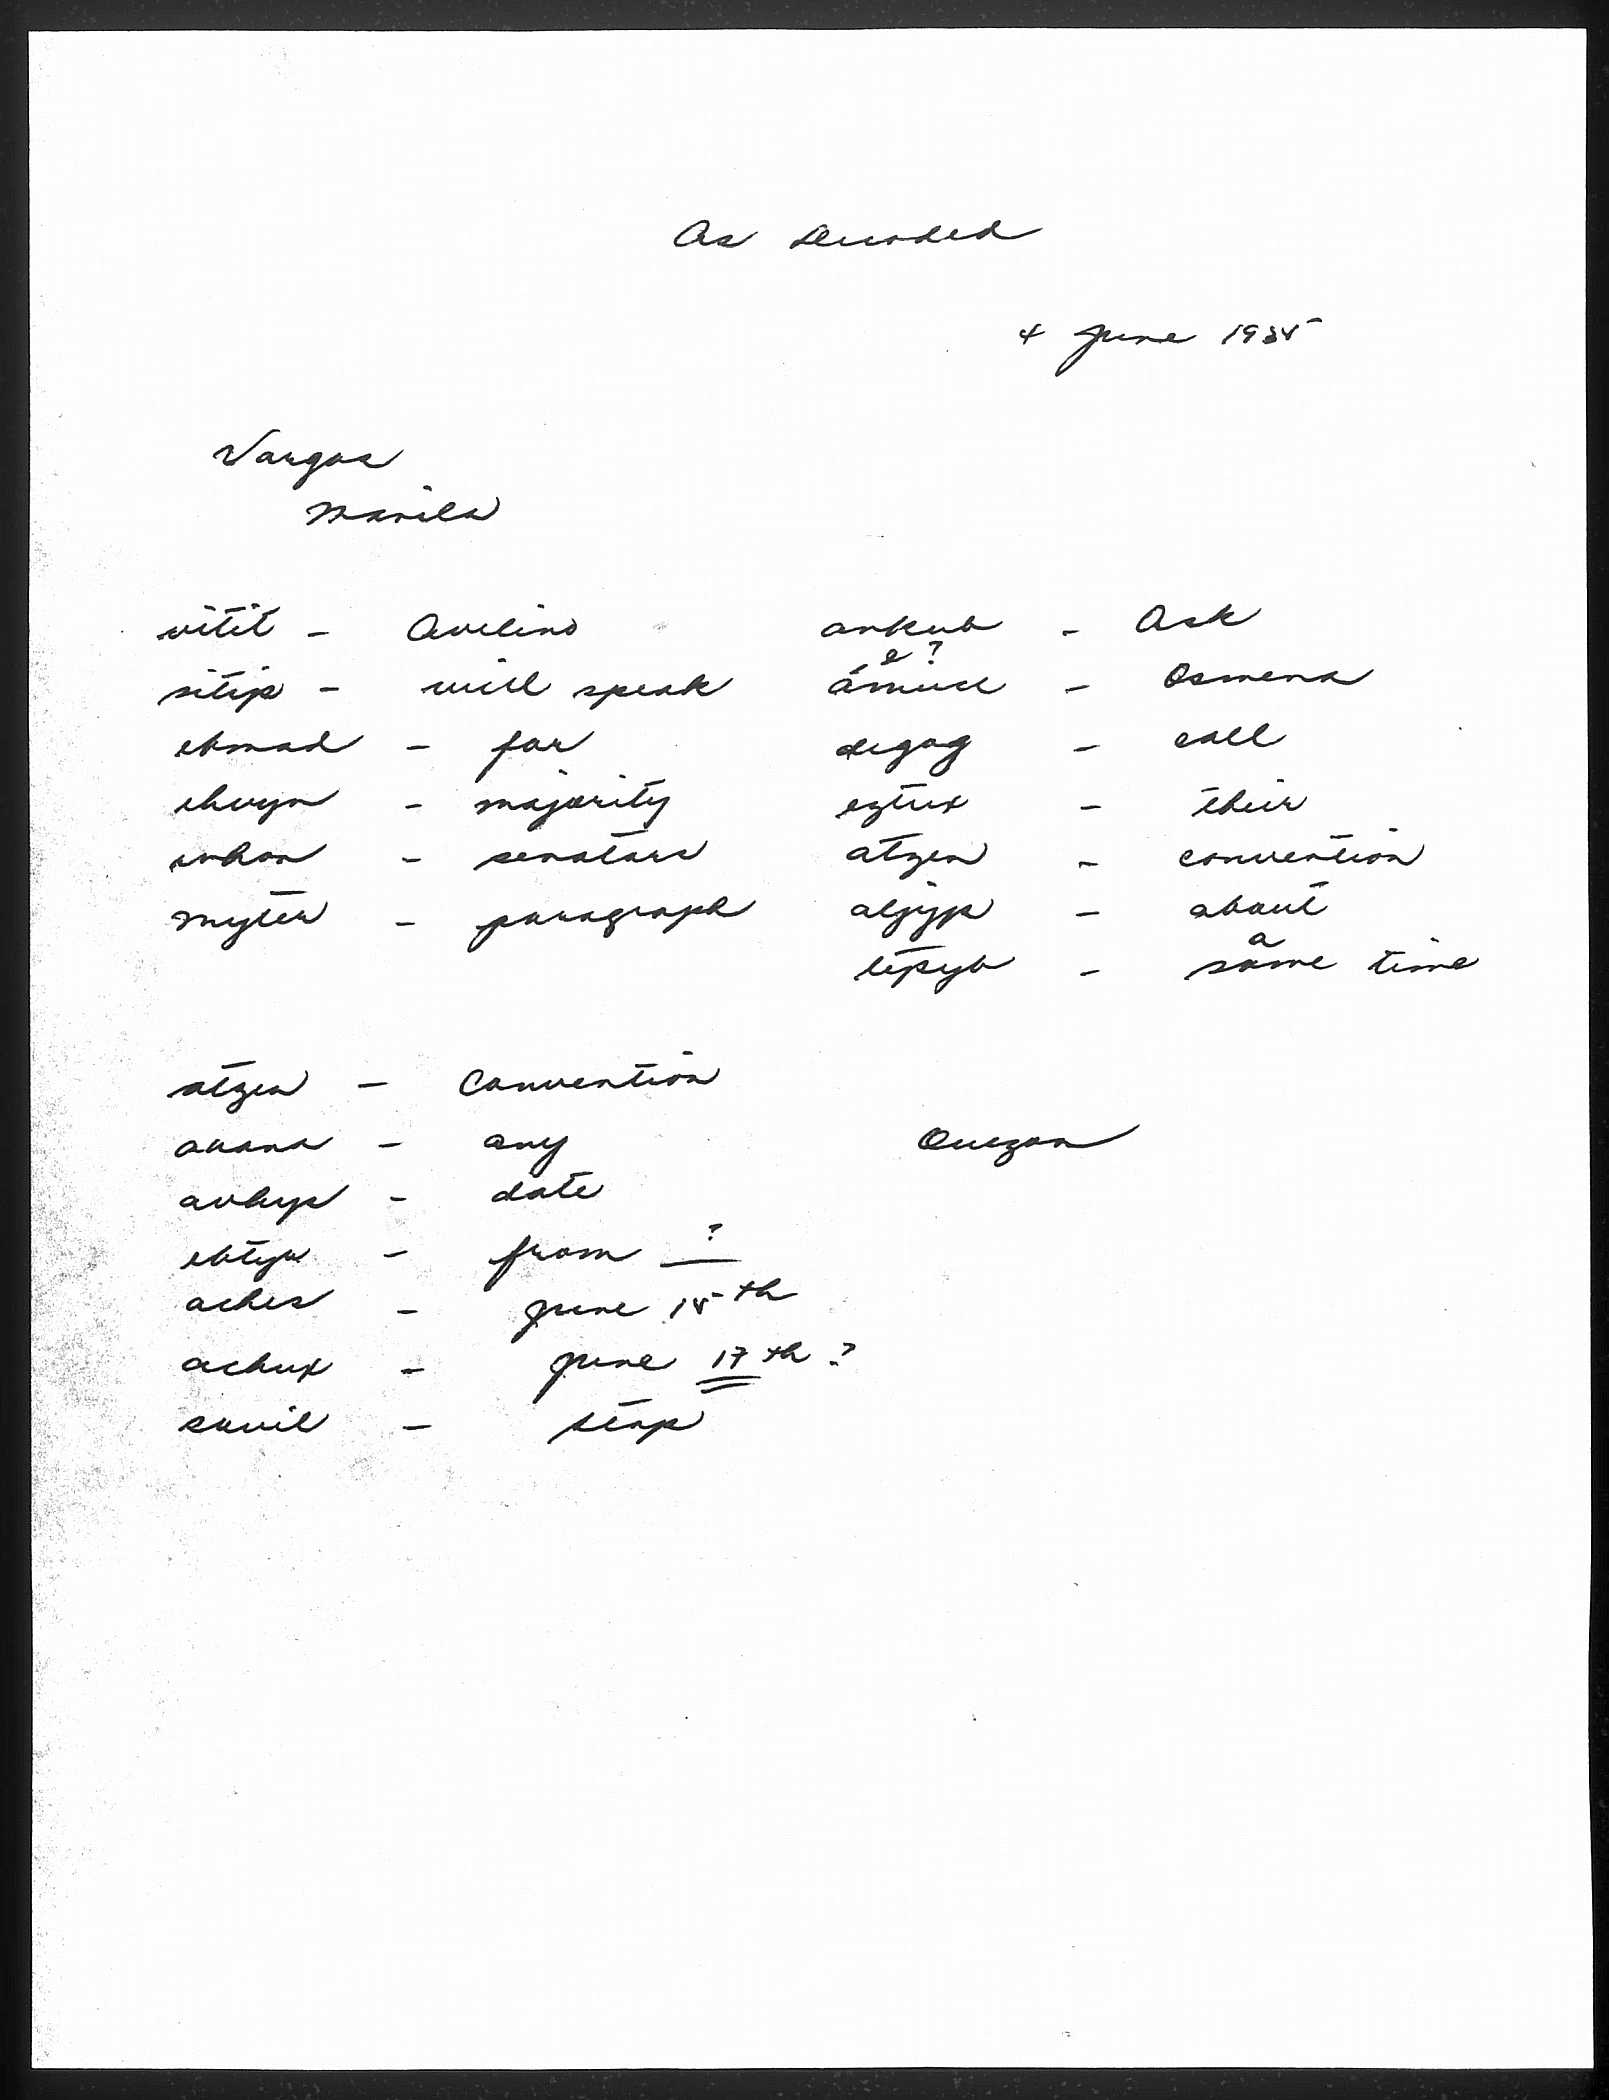 As Decoded
4 June 1935
Vargas
Manila
vitit - Avelino
sitip - will speak
ebmad - for
ehvyn - majority
enhon - senators
myter - paragraph
ankub - Ask
e ?
amucl - Osmena
degog - call
eztux - their
atzen - convention
aljyp - about
a
lepyb - some time
atzen - Convention
avana - any
Quezon
avhyp - date
ebtyw - from ?
aches - June 15th
achux - June 17th ?
savil - stop